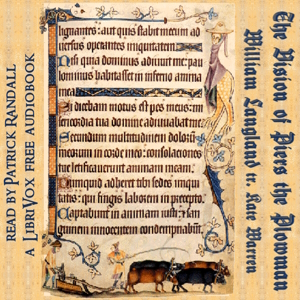 The Vision of Piers the Plowman
William Langland tr. Kate Warren
lignantes: aut quis stabit mecum ad
uersus operantes iniquitatem
Nisi quia dominus adiuuit me: pau
lominus habitasset in inferno anima
mea
Si dicebam motus est pes meus: mi
sericordia tua domine adiuuabat me
Secundum multitudinem dolorum
meorum in corde meo: consolationes
tue letificauerunt animam meam
Nunquid adheret tibi sedes iniqui
tatis: qui fingis laborem in precepto
Captabunt in animam iusti: et san
guinem innocentem condempnabunt
READ BY PATRICK RANDALL
A LIBRIVOX FREE AUDIOBOOK